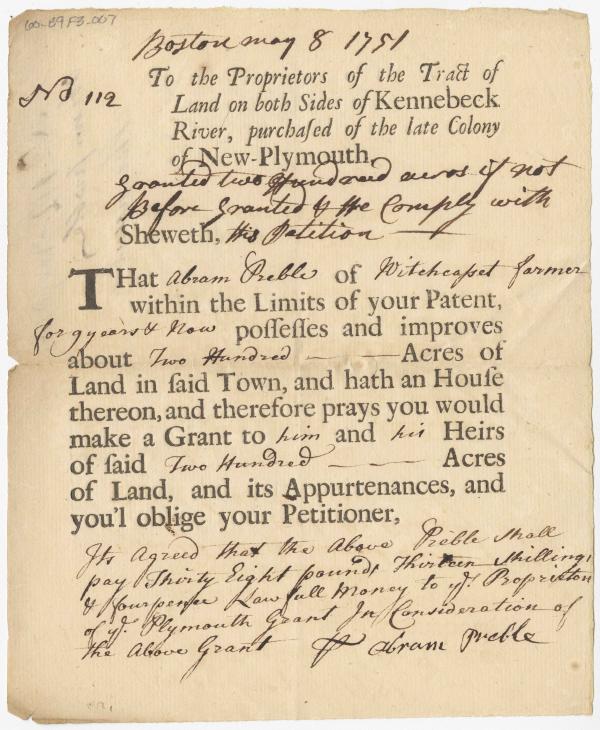 60-29F3-007
Boston may 8 1751
No 112
To the Proprietors of the Tract of
Land on both Sides of Kennebeck
River, purchaſed of the late Colony
of New-Plymouth,
Granted two Hundred acres if not
Before Granted & He Comply with
Sheweth, His Petition
THat Abram Preble of Witchcasset farmer
within the Limits of your Patent,
for 9 years & Now poſſeſſes and improves
about Two Hundred — — Acres of
Land in ſaid Town, and hath an Houſe
thereon, and therefore prays you would
make a Grant to him and his Heirs
of ſaid Two Hundred — — Acres
of Land, and its Appurtenances, and
you'l oblige your Petitioner,
Its Agreed that the Above Preble Shall
pay Thirty Eight pounds Thirteen Shillings
& fourpence Lawfull Money to ye. Proprietors
of ye. Plymouth Grant In Consideration of
the Above Grant Abram Preble